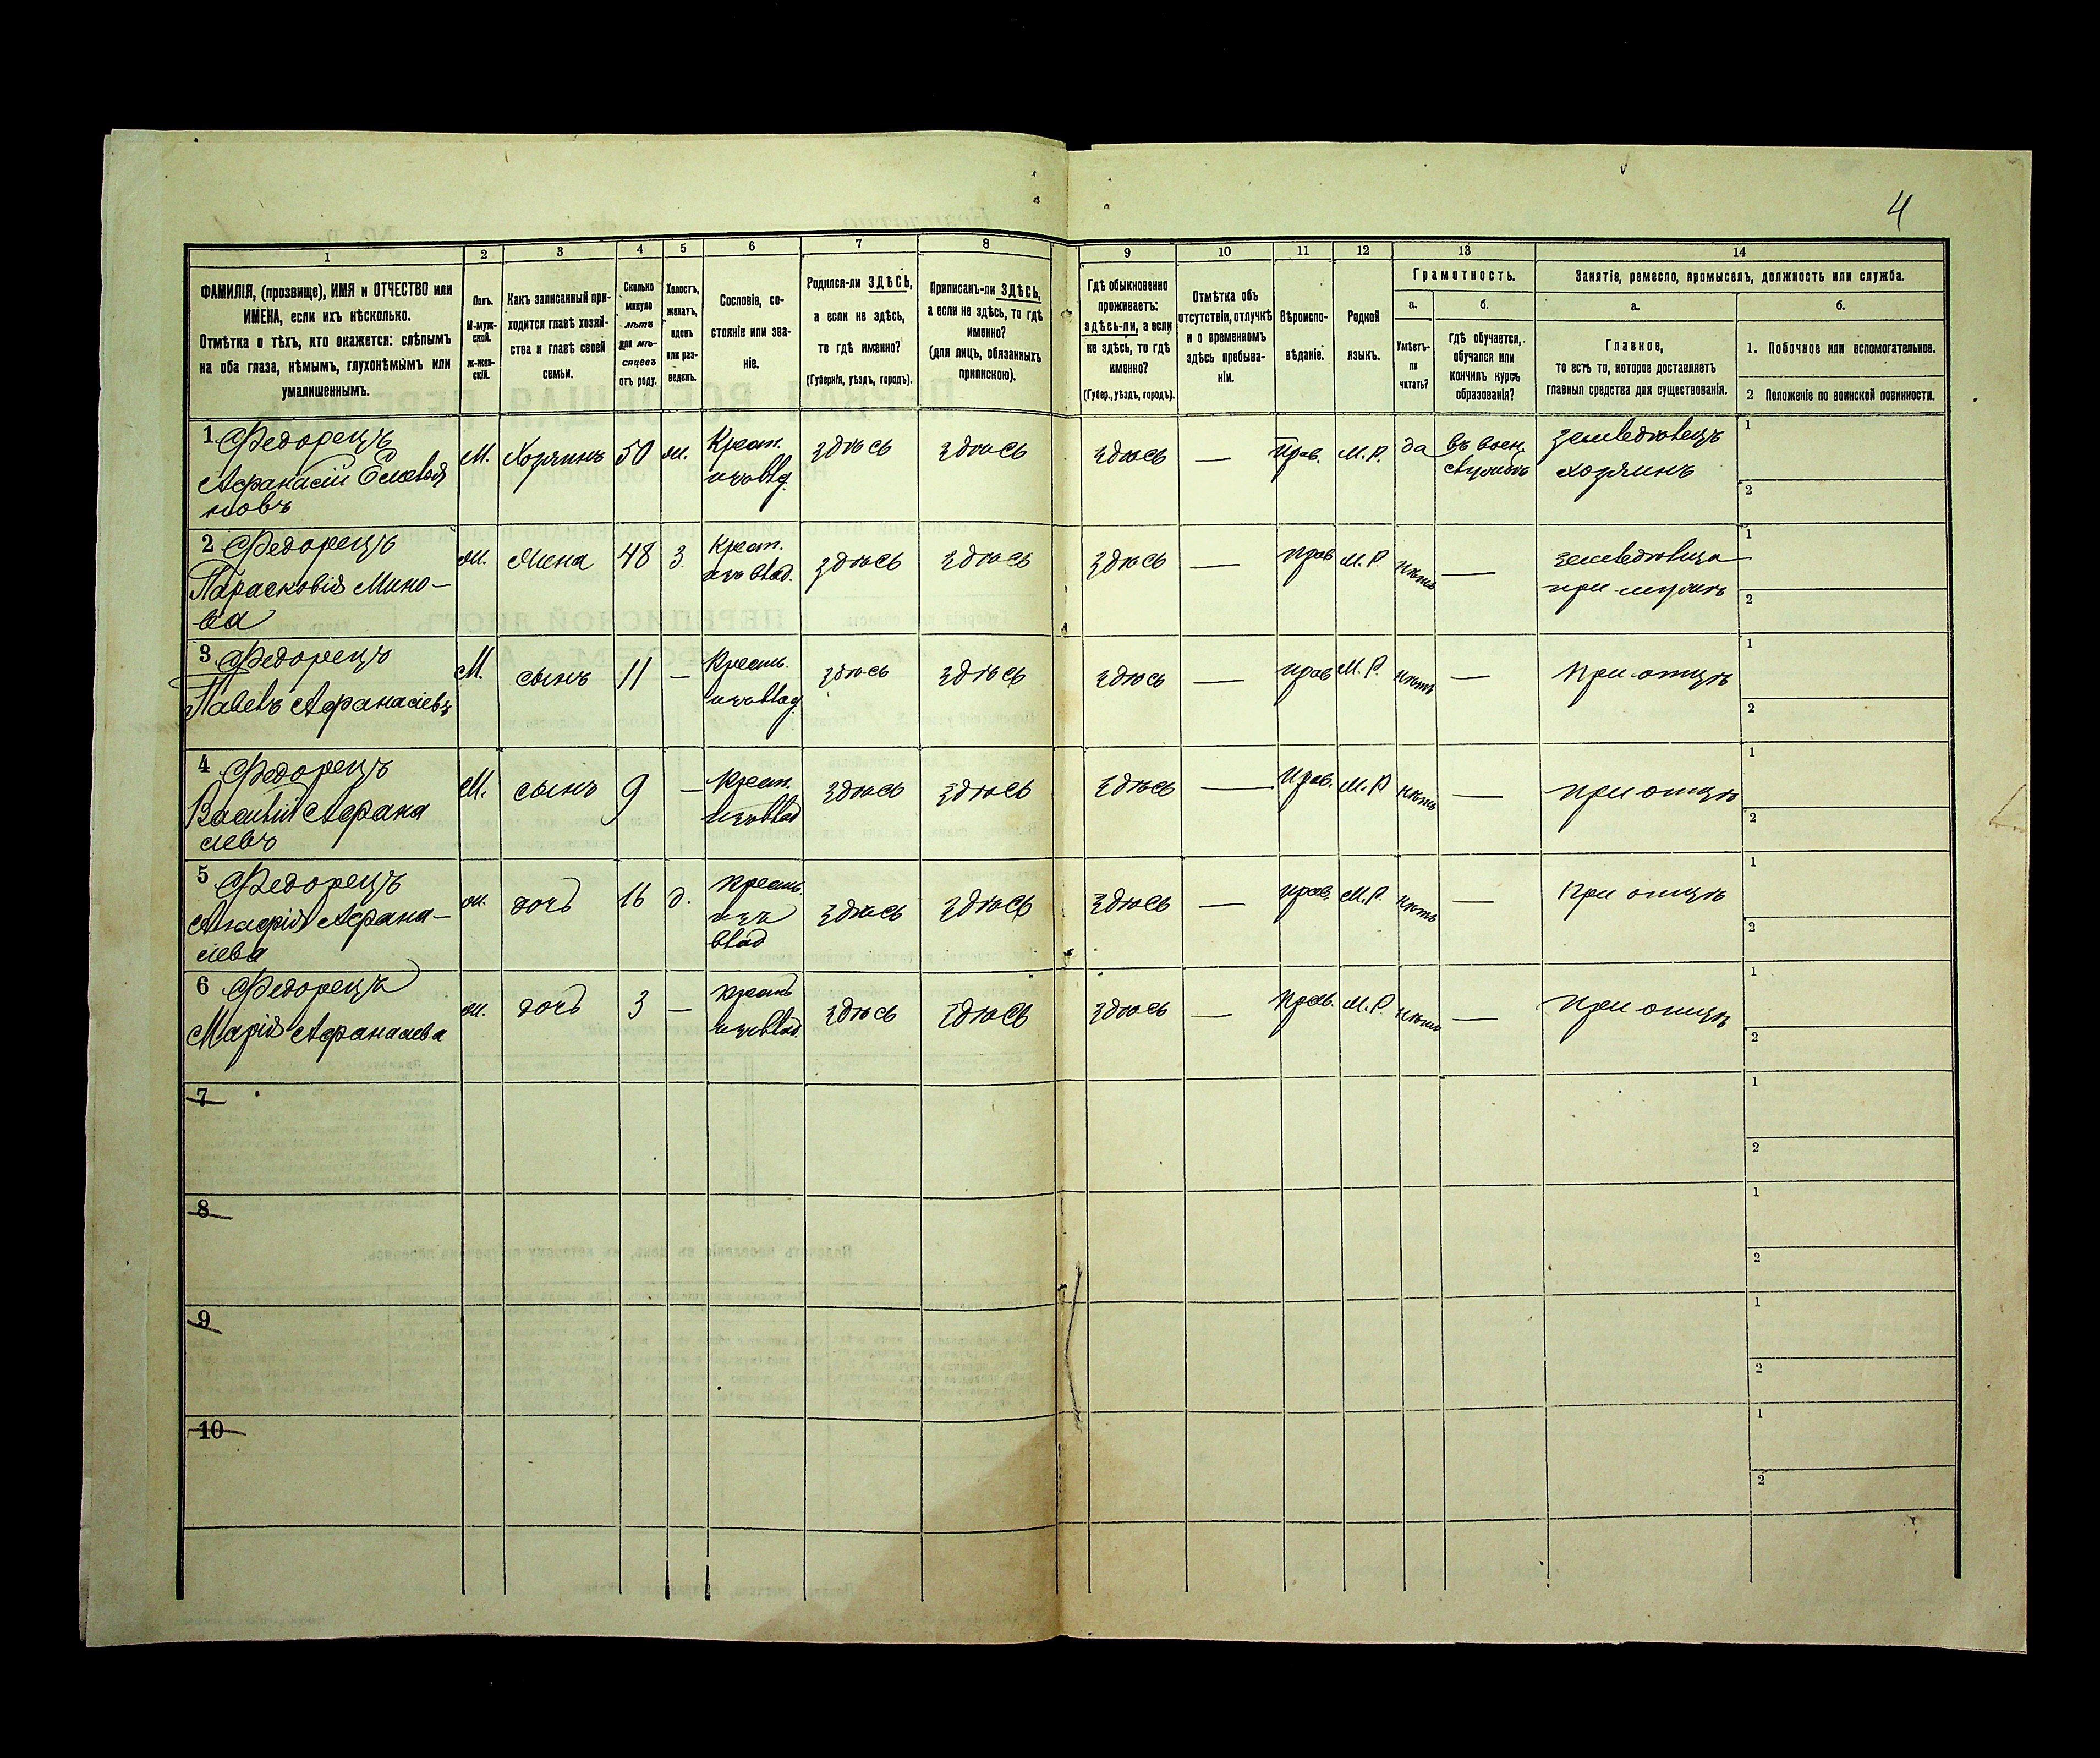 4
1
2
3
4
5
6
7
8
9
10
11
12
13
14
ФАМИЛІЯ, (прозвище), ИМЯ и ОТЧЕСТВО или
ИМЕНА, если ихъ нѣсколько.
Отмѣтка о тѣхъ, кто окажется: слѣпымъ
на оба глаза, нѣмымъ, глухонѣмымъ или
умалишеннымъ.
Полъ.
М-муж-
ской.
ж-жен-
скій.
Какъ записанный при-
ходится главѣ хозяй-
ства и главѣ своей
семьи.
Сколько
минуло
лѣтъ
или мѣ-
сяцевъ
отъ роду.
Холостъ,
женатъ,
вдовъ
или раз-
веденъ.
Сословіе, со-
стояніе или зва-
ніе.
Родился-ли ЗДѢСЬ,
а если не здѣсь,
то гдѣ именно?
(Губернія, уѣздъ, городъ).
Приписанъ-ли ЗДѢСЬ,
а если не здѣсь, то гдѣ
именно?
(для лицъ, обязанныхъ
припискою).
Гдѣ обыкновенно
проживаетъ:
здѣсь-ли, а если
не здѣсь, то гдѣ
именно?
(Губер., уѣздъ, городъ).
Отмѣтка объ
отсутствіи, отлучкѣ
и о временномъ
здѣсь пребыва-
ніи.
Вѣроиспо-
вѣданіе.
Родной
языкъ.
Грамотность.
а.
Умѣетъ-
ли
читать?
б.
гдѣ обучается,
обучался или
кончилъ курсъ
образованія?
Занятіе, ремесло, промыселъ, должность или служба.
а.
Главное,
то есть то, которое доставляетъ
главныя средства для существованія.
б.
1. Побочное или вспомогательное.
2 Положеніе по воинской повинности.
1 Федорецъ
Афанасій
новъ
М.
Хозяинъ
50
ж.
Крест.
изъ влд.
здѣсь
здѣсь
здѣсь
—
прав.
М.Р.
да
въ воен.
службѣ
земледѣлецъ
хозяинъ
1
2
2 Федорецъ
Парасковія Мино-
ва
ж.
Жена
48
З.
Крест.
изъ влад.
здѣсь
здѣсь
здѣсь
—
прав
М.Р.
нѣтъ
—
земледѣлица
при мужѣ
1
2
3 Федорецъ
Павелъ Афанасіевъ
М.
сынъ
11
—
Крест.
изъ влад
здѣсь
здѣсь
здѣсь
—
прав
М.Р.
нѣтъ
—
при отцѣ
1
2
4 Федорецъ
Василій Афана
сіевъ
М.
сынъ
9
—
Крест.
изъ влад
здѣсь
здѣсь
здѣсь
—
прав.
М.Р
нѣтъ
—
при отцѣ
1
2
5 Федорецъ
Агафія Афана-
сіева
ж.
дочь
16
д.
крест.
изъ
влад
здѣсь
здѣсь
здѣсь
—
прав.
М.Р.
нѣтъ
—
при отцѣ
1
2
6 Федорецъ
Марія Афанасіева
ж.
дочь
3
—
крест
изъ влад.
здѣсь
здѣсь
здѣсь
—
прав.
М.Р.
нѣтъ
—
при отцѣ
1
2
7
1
2
8
1
2
9
1
2
10
1
2